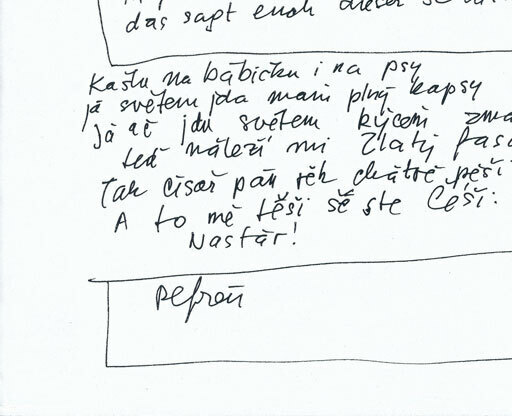 das sagt euch dieser
Kašlu na babičku i na psy
já světem jda mám plný kapsy
Já ač jdu světem
teď náleží mi Zlatý
Tak císař pán řek chátře pěší
A to mě těší že ste Češi:
Nastár!
Refrain